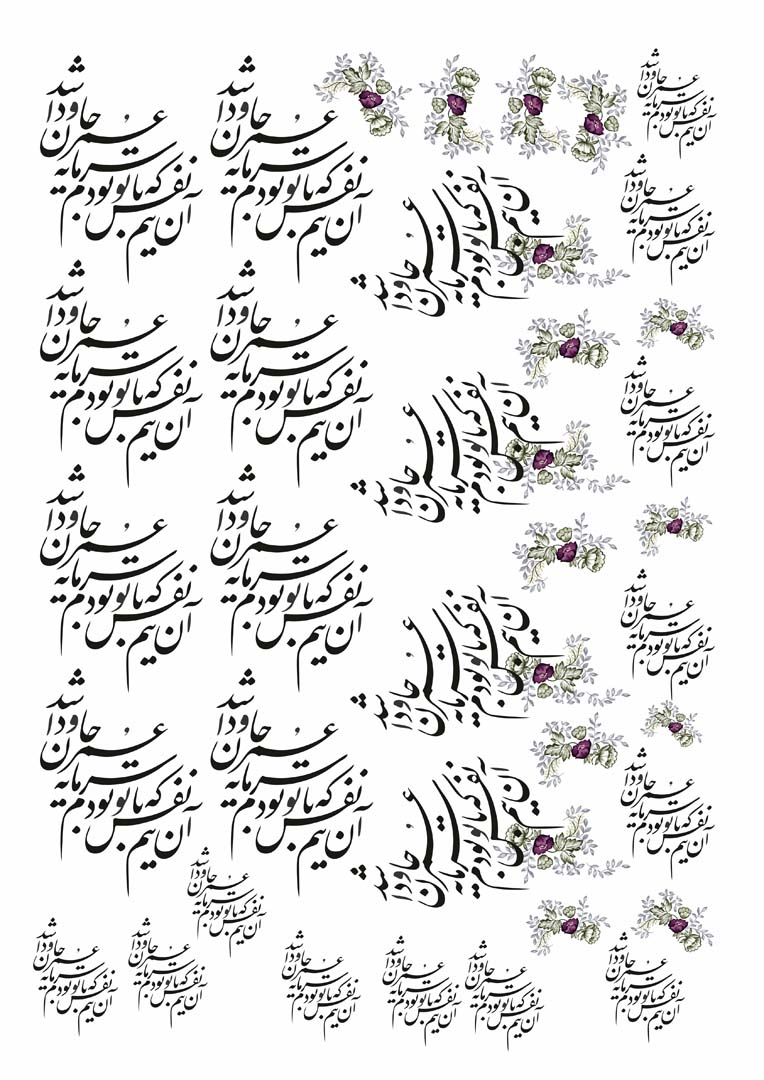 آن نیم نفس که با تو بودم
سرمایه عمر جاودان شد
آن نیم نفس که با تو بودم
سرمایه عمر جاودان شد
آن نیم نفس که با تو بودم
سرمایه عمر جاودان شد
آن نیم نفس که با تو بودم
سرمایه عمر جاودان شد
آن نیم نفس که با تو بودم
سرمایه عمر جاودان شد
آن نیم نفس که با تو بودم
سرمایه عمر جاودان شد
آن نیم نفس که با تو بودم
سرمایه عمر جاودان شد
آن نیم نفس که با تو بودم
سرمایه عمر جاودان شد
آن نیم نفس که با تو بودم
سرمایه عمر جاودان شد
آن نیم نفس که با تو بودم
سرمایه عمر جاودان شد
آن نیم نفس که با تو بودم
سرمایه عمر جاودان شد
آن نیم نفس که با تو بودم
سرمایه عمر جاودان شد
آن نیم نفس که با تو بودم
سرمایه عمر جاودان شد
آن نیم نفس که با تو بودم
سرمایه عمر جاودان شد
آن نیم نفس که با تو بودم
سرمایه عمر جاودان شد
آن نیم نفس که با تو بودم
سرمایه عمر جاودان شد
آن نیم نفس که با تو بودم
سرمایه عمر جاودان شد
آن نیم نفس که با تو بودم
سرمایه عمر جاودان شد
آن نیم نفس که با تو بودم
سرمایه عمر جاودان شد
آن نیم نفس که با تو بودم
سرمایه عمر جاودان شد
آن نیم نفس که با تو بودم
سرمایه عمر جاودان شد
آن نیم نفس که با تو بودم
سرمایه عمر جاودان شد
آن نیم نفس که با تو بودم
سرمایه عمر جاودان شد
آن نیم نفس که با تو بودم
سرمایه عمر جاودان شد